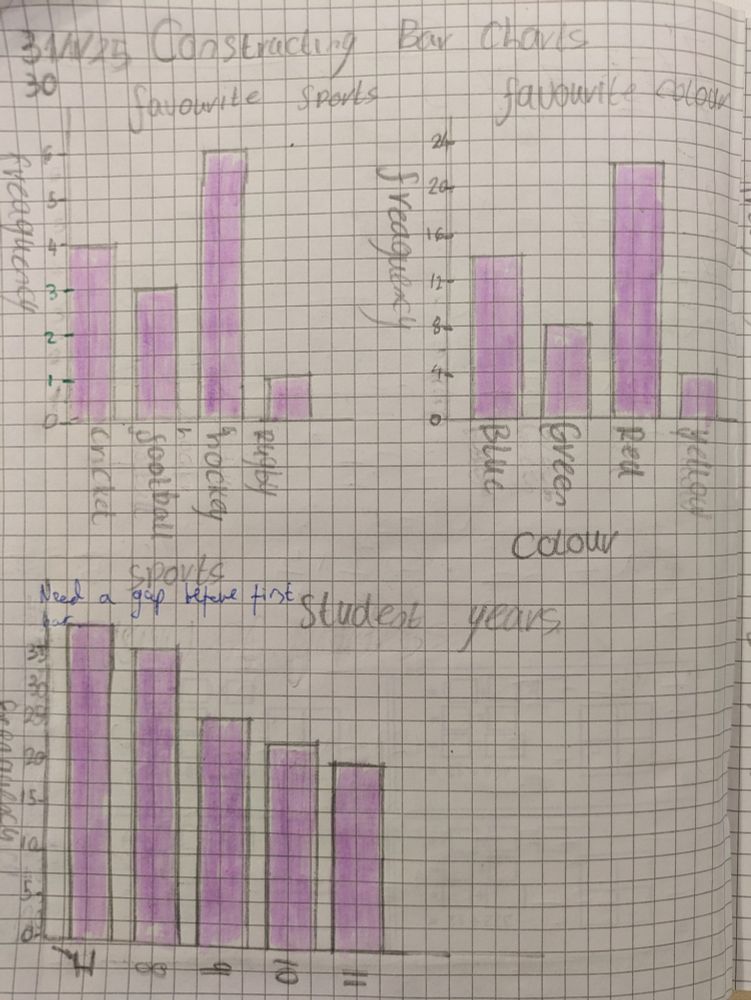 Constructing Bar Charts
30
favourite sports
freaquency
6
5
4
3
2
1
0
cricket
football
hockey
rugby
sports
favourite colour
freaquency
24
20
16
12
8
4
0
Blue
Green
Red
yellow
Colour
Need a gap before first
bar
Student years
freaquency
35
30
25
20
15
10
5
0
7
8
9
10
11